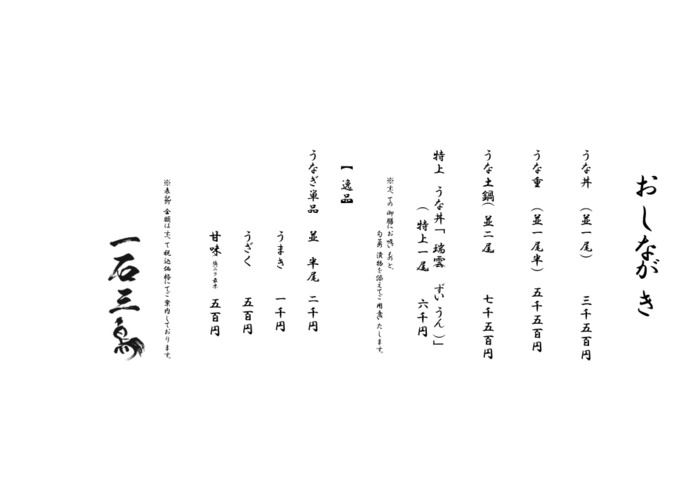 おしながき
うな丼　（並一尾）　三千五百円
うな重　（並一尾半）　五千五百円
うな土鍋（並二尾　七千五百円
特上　うな丼「瑞雲　ずいうん）」
（特上一尾　六千円
※全ての御膳にお吸い物と、
旬菜 漬物を添えてご用意いたします。
【逸品】
うなぎ単品　並　半尾　二千円
うまき　一千円
うざく　五百円
甘味　五百円
※表記金額は全て税込価格にてご案内しております。
一石三鳥